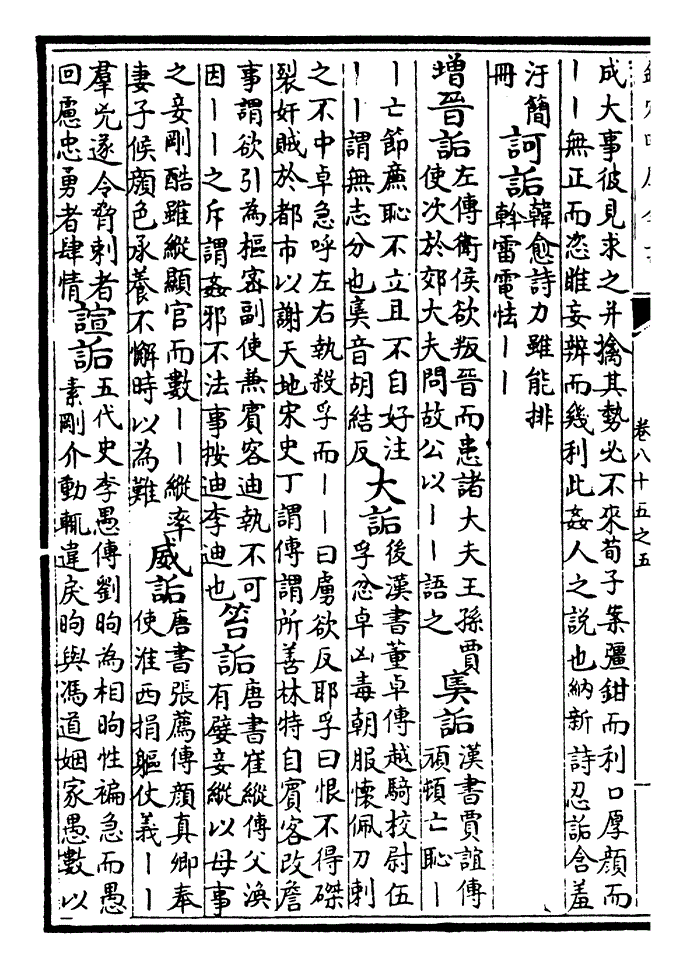 卷八十五之五
一
成大事彼見求之并擒其勢必不來荀子案彊鉗而利口厚顔而
丨丨無正而恣睢妄辨而幾利此姦人之説也納新詩忍詬含羞
汙簡
冊
訶詬
韓愈詩力雖能排
斡雷電怯丨丨
増晉詬
左傳衛侯欲叛晉而患諸大夫王孫賈
使次於郊大夫問故公以丨丨語之
奊詬
漢書賈誼傳
頑頓亡恥丨
丨亡節廉恥不立且不自好注
丨丨謂無志分也奊音胡結反
大詬
後漢書董卓傳越騎校尉伍
孚忿卓凶毒朝服懷佩刀刺
之不中卓急呼左右執殺孚而丨丨曰虜欲反耶孚曰恨不得磔
裂奸賊於都市以謝天地宋史丁謂傳謂所善林特自賓客改詹
事謂欲引為樞密副使兼賓客迪執不可
因丨丨之斥謂姦邪不法事按迪李迪也
笞詬
唐書崔縱傳父渙
有嬖妾縱以母事
之妾剛酷雖縱顯官而數丨丨縱率
妻子候顔色承養不懈時以為難
威詬
唐書張薦傳顔真卿奉
使淮西捐軀仗義丨丨
羣兇遂令脅刺者
回慮忠勇者肆情
諠詬
五代史李愚傳劉昫為相昫性褊急而愚
素剛介動輒違戾昫與馮道姻家愚數以